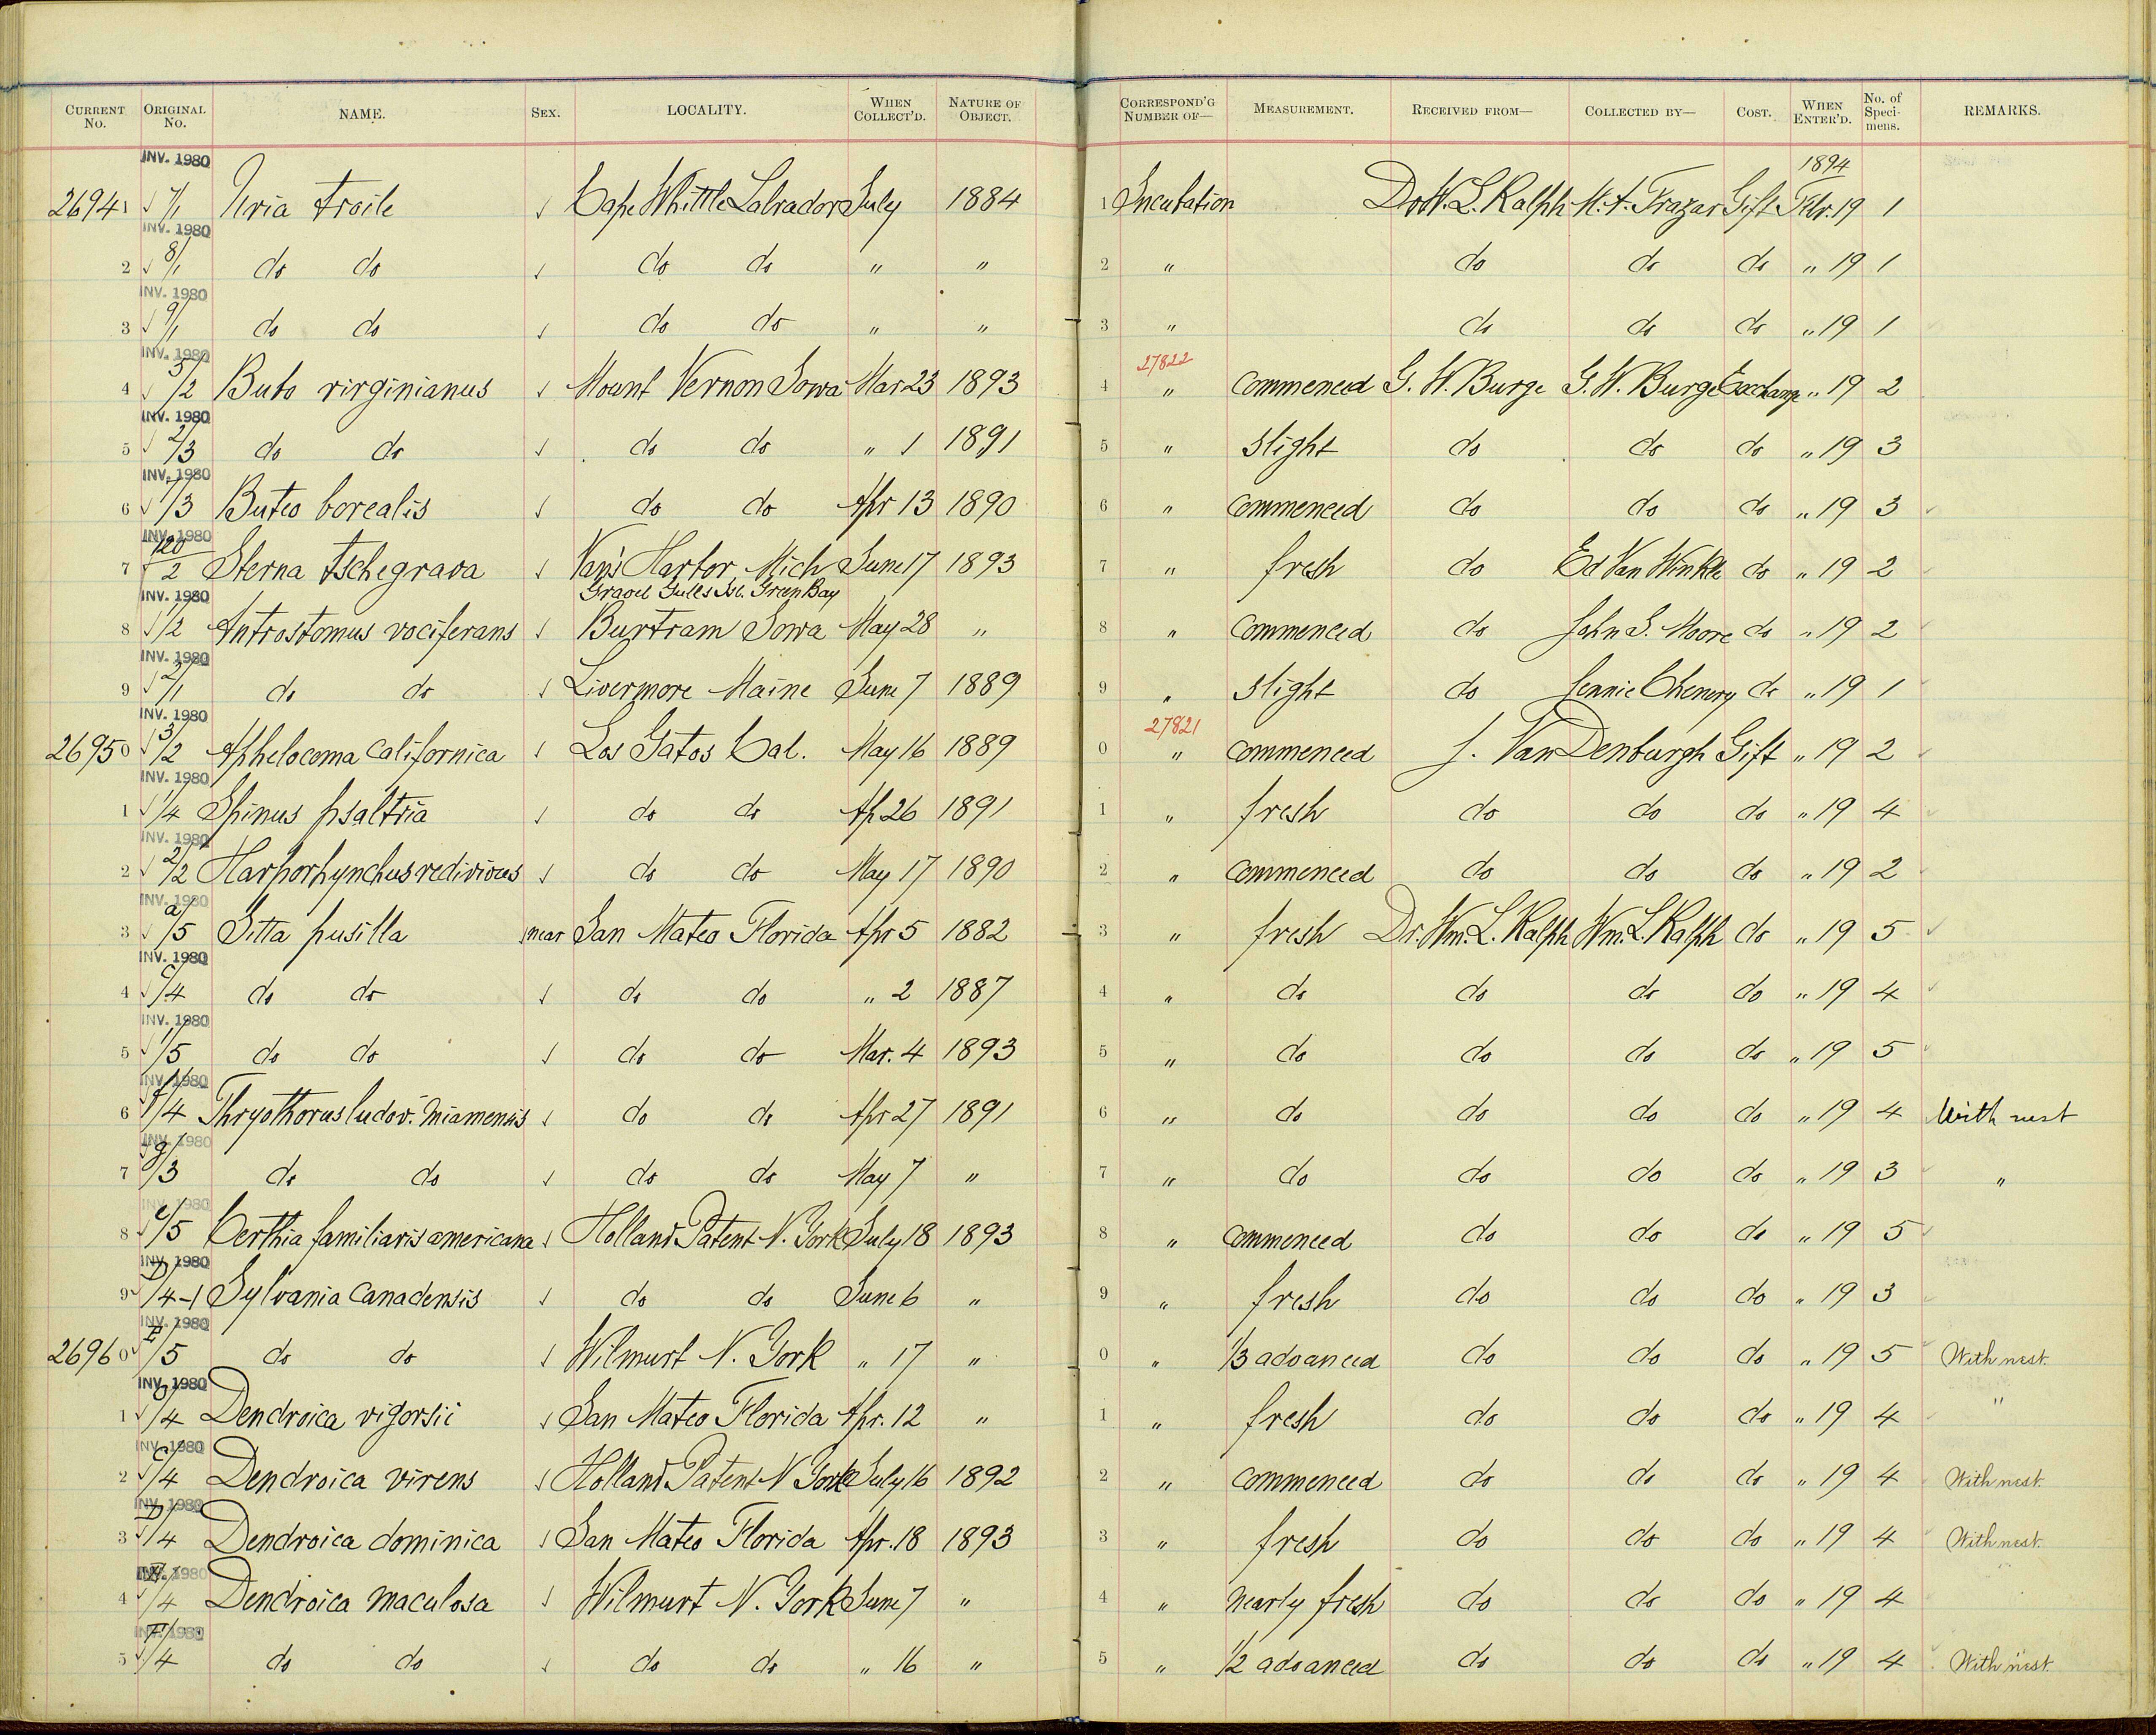 CURRENT No. ORIGINAL No. NAME. SEX. LOCALITY. WHEN COLLECT'D. NATURE OF OBJECT. CORRESPOND'G NUMBER OF— MEASUREMENT. RECEIVED FROM— COLLECTED BY— COST. WHEN ENTER'D. No. of Specimens. REMARKS.
INV. 1980 1894
26941 7/1 Uria troile Cape Whittle Labrador July 1884 1 Incubation Dr W. L. Ralph M. A. Frazar Gift Febr. 19 1
INV. 1980
2 8/1 do do do do " " 2 " do do do " 19 1
INV. 1980
3 9/1 do do do do " " 3 " do do do " 19 1
INV. 1980 27822
4 5/2 Bubo virginianus Mount Vernon Iowa Mar 23 1893 4 " commenced G. W. Burge G. W. Burge Exchange " 19 2
INV. 1980
5 2/3 do do do do " 1 1891 5 " slight do do do " 19 3
INV. 1980
6 1/3 Buteo borealis do do Apr 13 1890 6 " commenced do do do " 19 3
INV. 1980
7 120/2 Sterna tschegrava Van's Harbor Mich June 17 1893 7 " fresh do Ed Van Winkle do " 19 2
INV. 1980 Gravel Gulls Isl. Green Bay
8 1/2 Antrostomus vociferans Burtram Iowa May 28 " 8 " commenced do John S. Moore do " 19 2
INV. 1980
9 2/1 do do Livermore Maine June 7 1889 9 " slight do Jennie Chenery do " 19 1
INV. 1980 27821
26950 3/2 Aphelocoma californica Los Gatos Cal. May 16 1889 0 " commenced J. Van Denburgh Gift " 19 2
INV. 1980
1 1/4 Spinus psaltria do do Ap 26 1891 1 " fresh do do do " 19 4
INV. 1980
2 2/2 Harporhynchus redivivus do do May 17 1890 2 " commenced do do do " 19 2
INV. 1980
3 a/5 Sitta pusilla near San Mateo Florida Apr 5 1882 3 " fresh Dr. Wm. L. Ralph Wm. L. Ralph do " 19 5
INV. 1980
4 c/4 do do do do " 2 1887 4 " do do do do " 19 4
INV. 1980
5 1/5 do do do do Mar. 4 1893 5 " do do do do " 19 5
INV. 1980
6 f/4 Thryothorus ludov. miamensis do do Apr 27 1891 6 " do do do do " 19 4 With nest
INV. 1980
7 g/3 do do do do May 7 " 7 " do do do do " 19 3 "
INV. 1980
8 c/5 Certhia familiaris americana Holland Patent N. York July 18 1893 8 " commenced do do do " 19 5
INV. 1980
9 D/4-1 Sylvania canadensis do do June 6 " 9 " fresh do do do " 19 3
INV. 1980
26960 E/5 do do Wilmurt N. York " 17 " 0 " 1/3 advanced do do do " 19 5 With nest.
INV. 1980
1 O/4 Dendroica vigorsii San Mateo Florida Apr. 12 " 1 " fresh do do do " 19 4 "
INV. 1980
2 C/4 Dendroica virens Holland Patent N York July 16 1892 2 " commenced do do do " 19 4 With nest.
INV. 1980
3 D/4 Dendroica dominica San Mateo Florida Apr. 18 1893 3 " fresh do do do " 19 4 With nest.
INV. 1980
4 /4 Dendroica maculosa Wilmurt N. York June 7 " 4 " nearly fresh do do do " 19 4
INV. 1980
5 F/4 do do do do " 16 " 5 " 1/2 advanced do do do " 19 4 With nest.